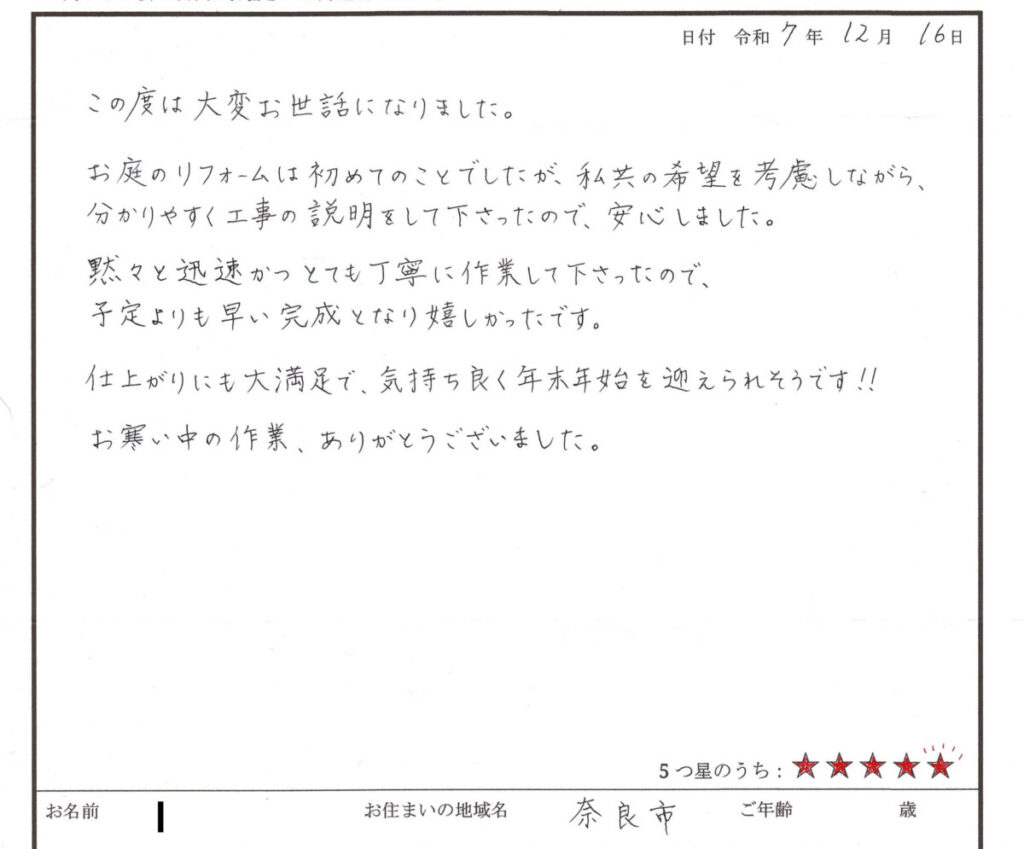 日付 令和7年 12月 16日
この度は大変お世話になりました。
お庭のリフォームは初めてのことでしたが、私共の希望を考慮しながら、
分かりやすく工事の説明をして下さったので、安心しました。
黙々と迅速かつとても丁寧に作業して下さったので、
予定よりも早い完成となり嬉しかったです。
仕上がりにも大満足で、気持ち良く年末年始を迎えられそうです!!
お寒い中の作業、ありがとうございました。
5つ星のうち：★★★★★
お名前 お住まいの地域名 奈良市 ご年齢 歳